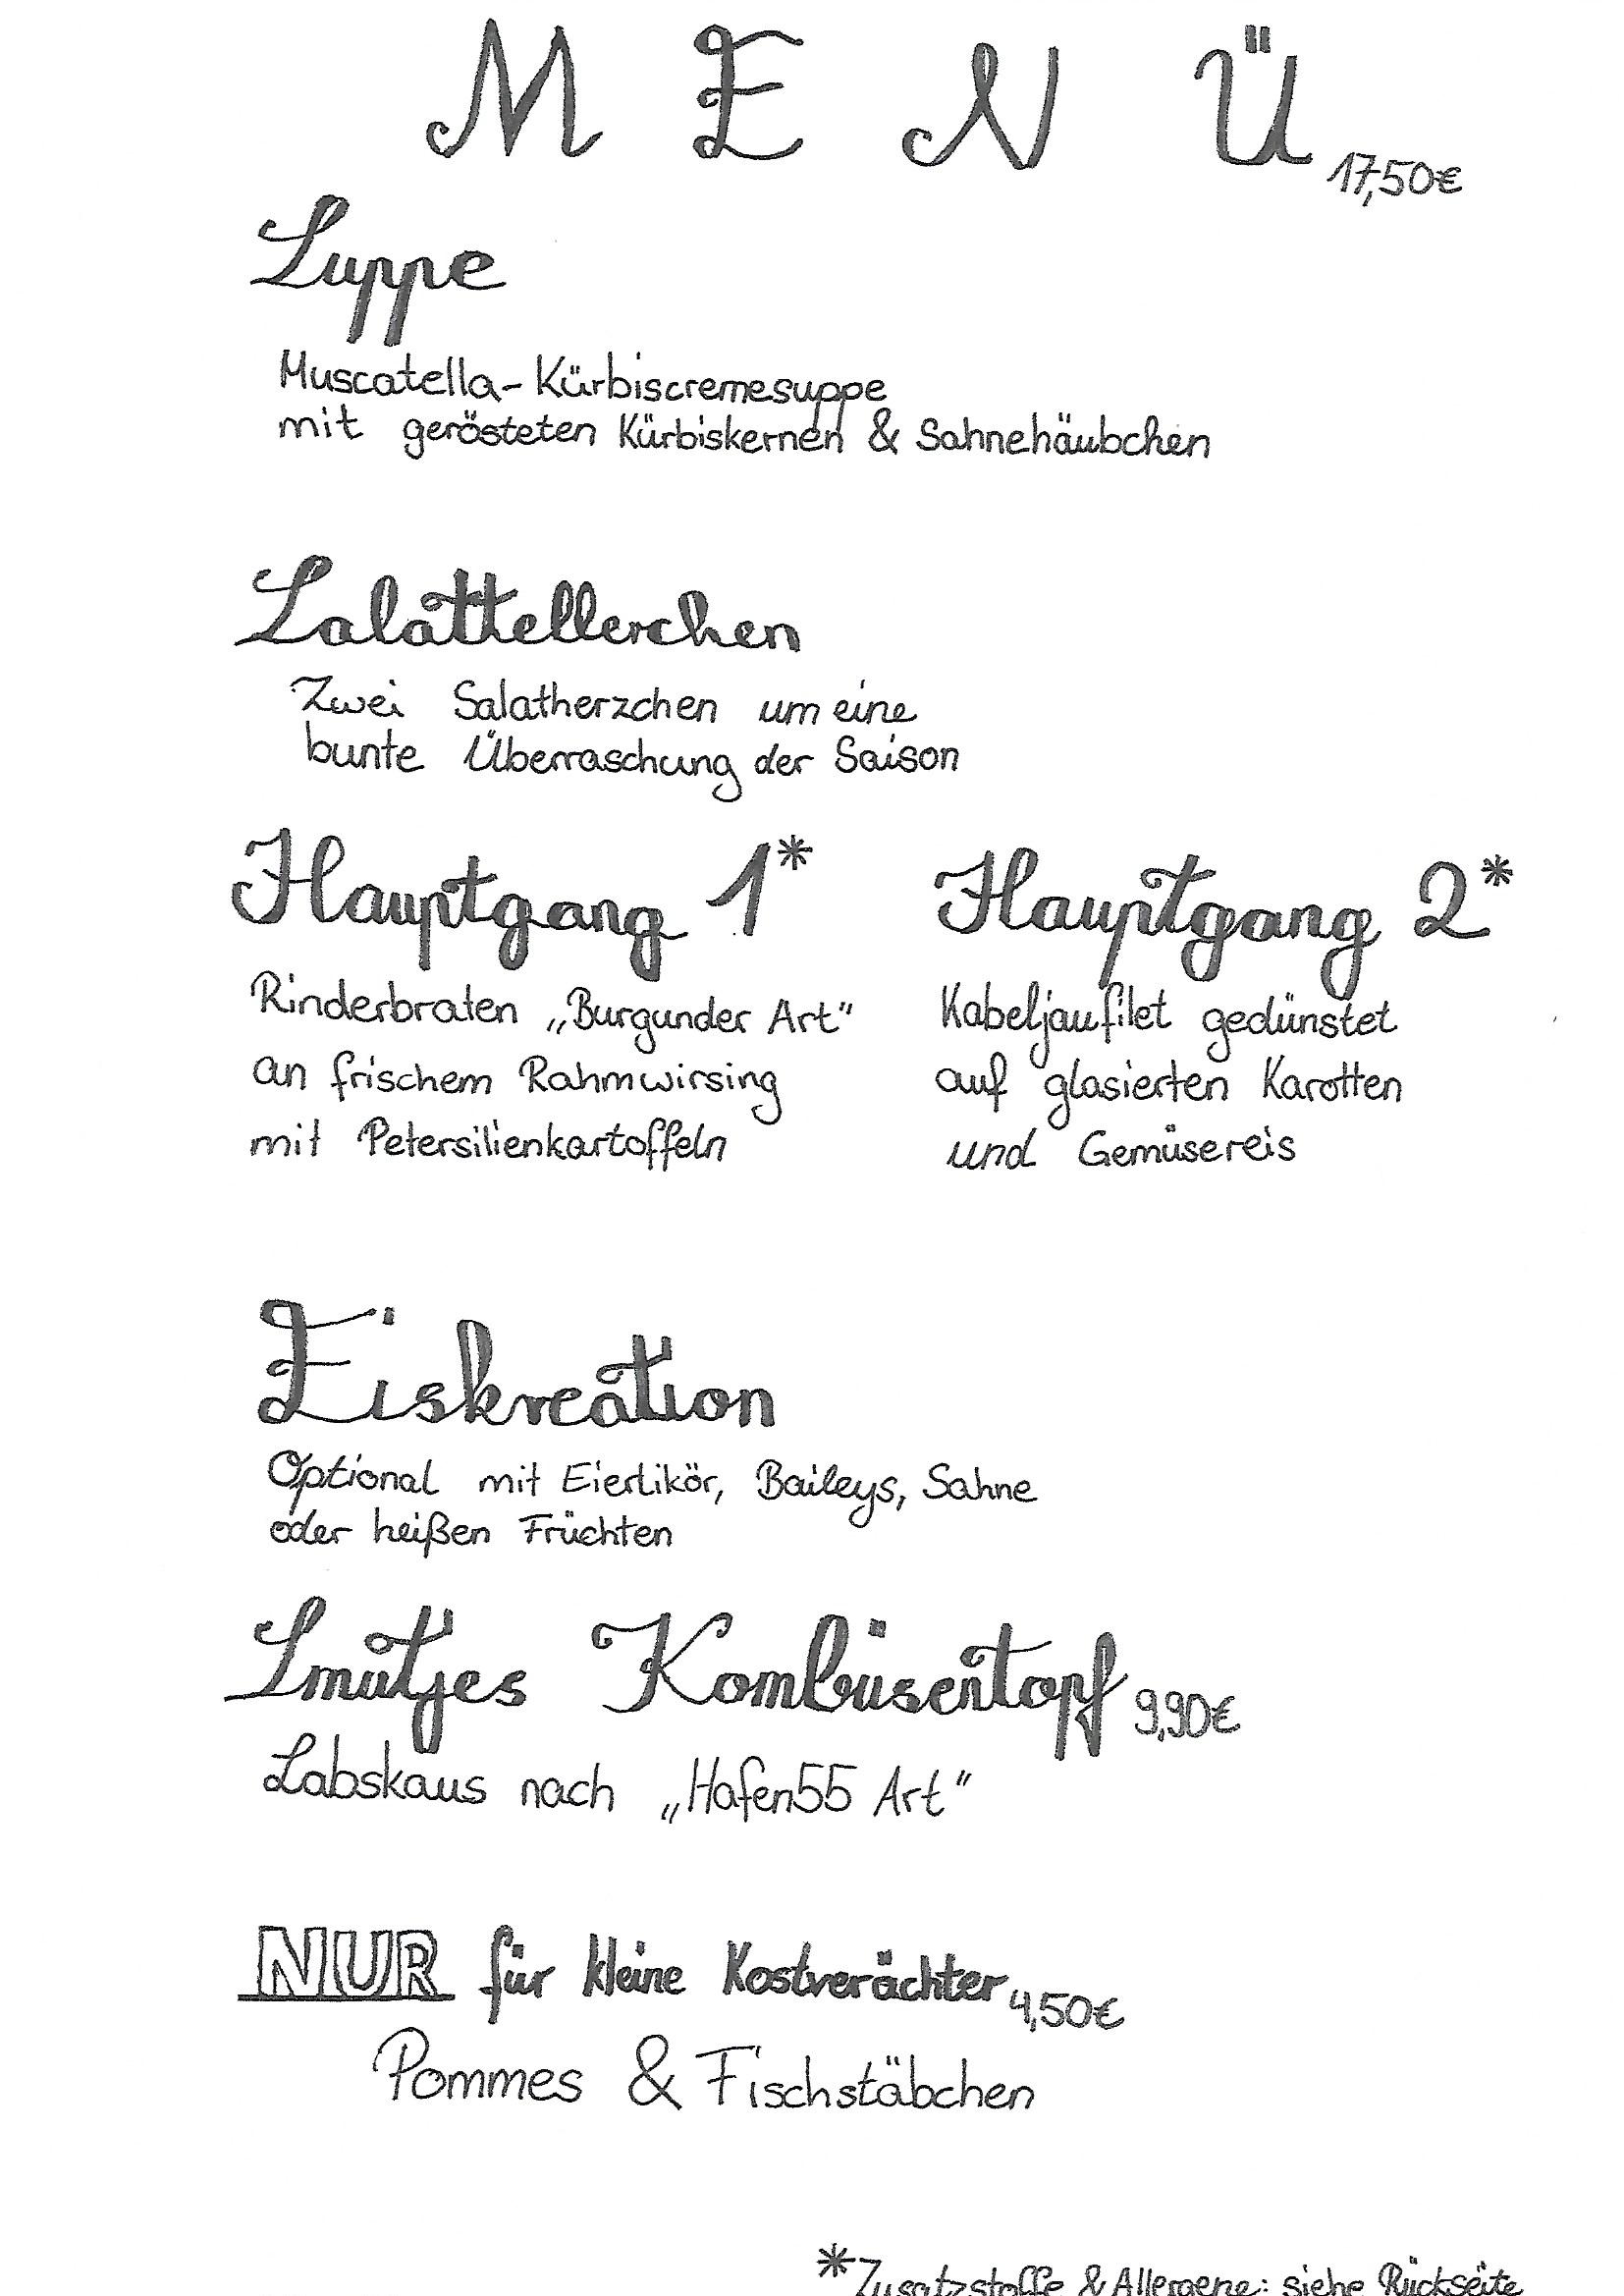 MENÜ 17,50€
Suppe
Muscatella-Kürbiscremesuppe
mit gerösteten Kürbiskernen & Sahnehäubchen
Salattellerchen
Zwei Salatherzchen um eine
bunte Überraschung der Saison
Hauptgang 1*
Rinderbraten „Burgunder Art“
an frischem Rahmwirsing
mit Petersilienkartoffeln
Hauptgang 2*
Kabeljaufilet gedünstet
auf glasierten Karotten
und Gemüsereis
Eiskreation
Optional mit Eierlikör, Baileys, Sahne
oder heißen Früchten
Smutjes Kombüsentopf 9,90€
Labskaus nach „Hafen55 Art“
NUR für kleine Kostverächter 4,50€
Pommes & Fischstäbchen
*Zusatzstoffe & Allergene: siehe Rückseite